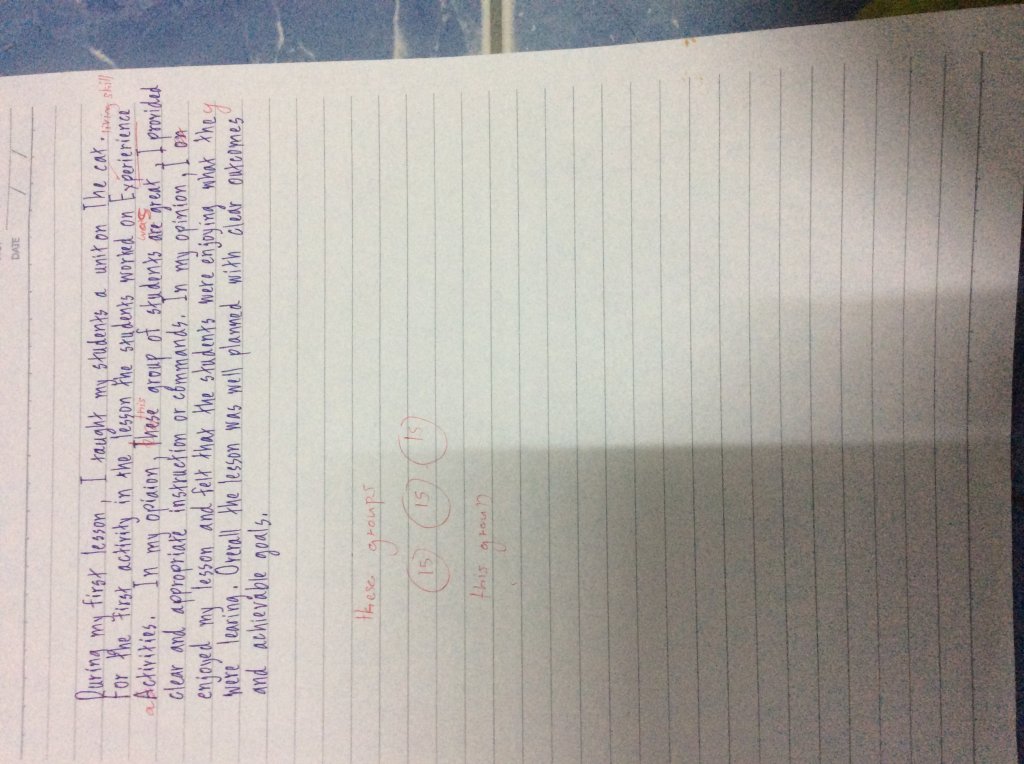 DATE / /
During my first lesson, I taught my students a unit on The cat.
living skill
For the first activity in the lesson the students worked on Experierience
a Activities. In my opinion, These this group of students are was great, I provided
clear and appropriate instruction or commands. In my opinion, I
enjoyed my lesson and felt that the students were enjoying what they
were learing. Overall the lesson was well planned with clear outcomes
and achievable goals.
these groups
15 15 15
this group